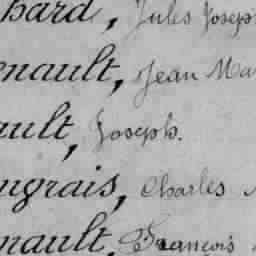 hard, Jules Joseph
nault, Jean Ma
ault, Joseph.
ugrais, Charles
nault, François